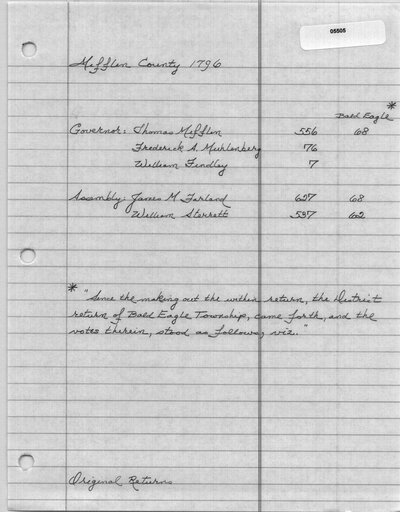 05505
Mifflin County 1796
*
Bald Eagle
Governor: Thomas Mifflin 556 68
Frederick A. Muhlenberg 76
William Findley 7
Assembly: James McFarland 627 68
William Sterrett 597 62
* "Since the making out the within return, the District
return of Bald Eagle Township, came forth, and the
votes therein, stood as follows, viz."
Original Returns